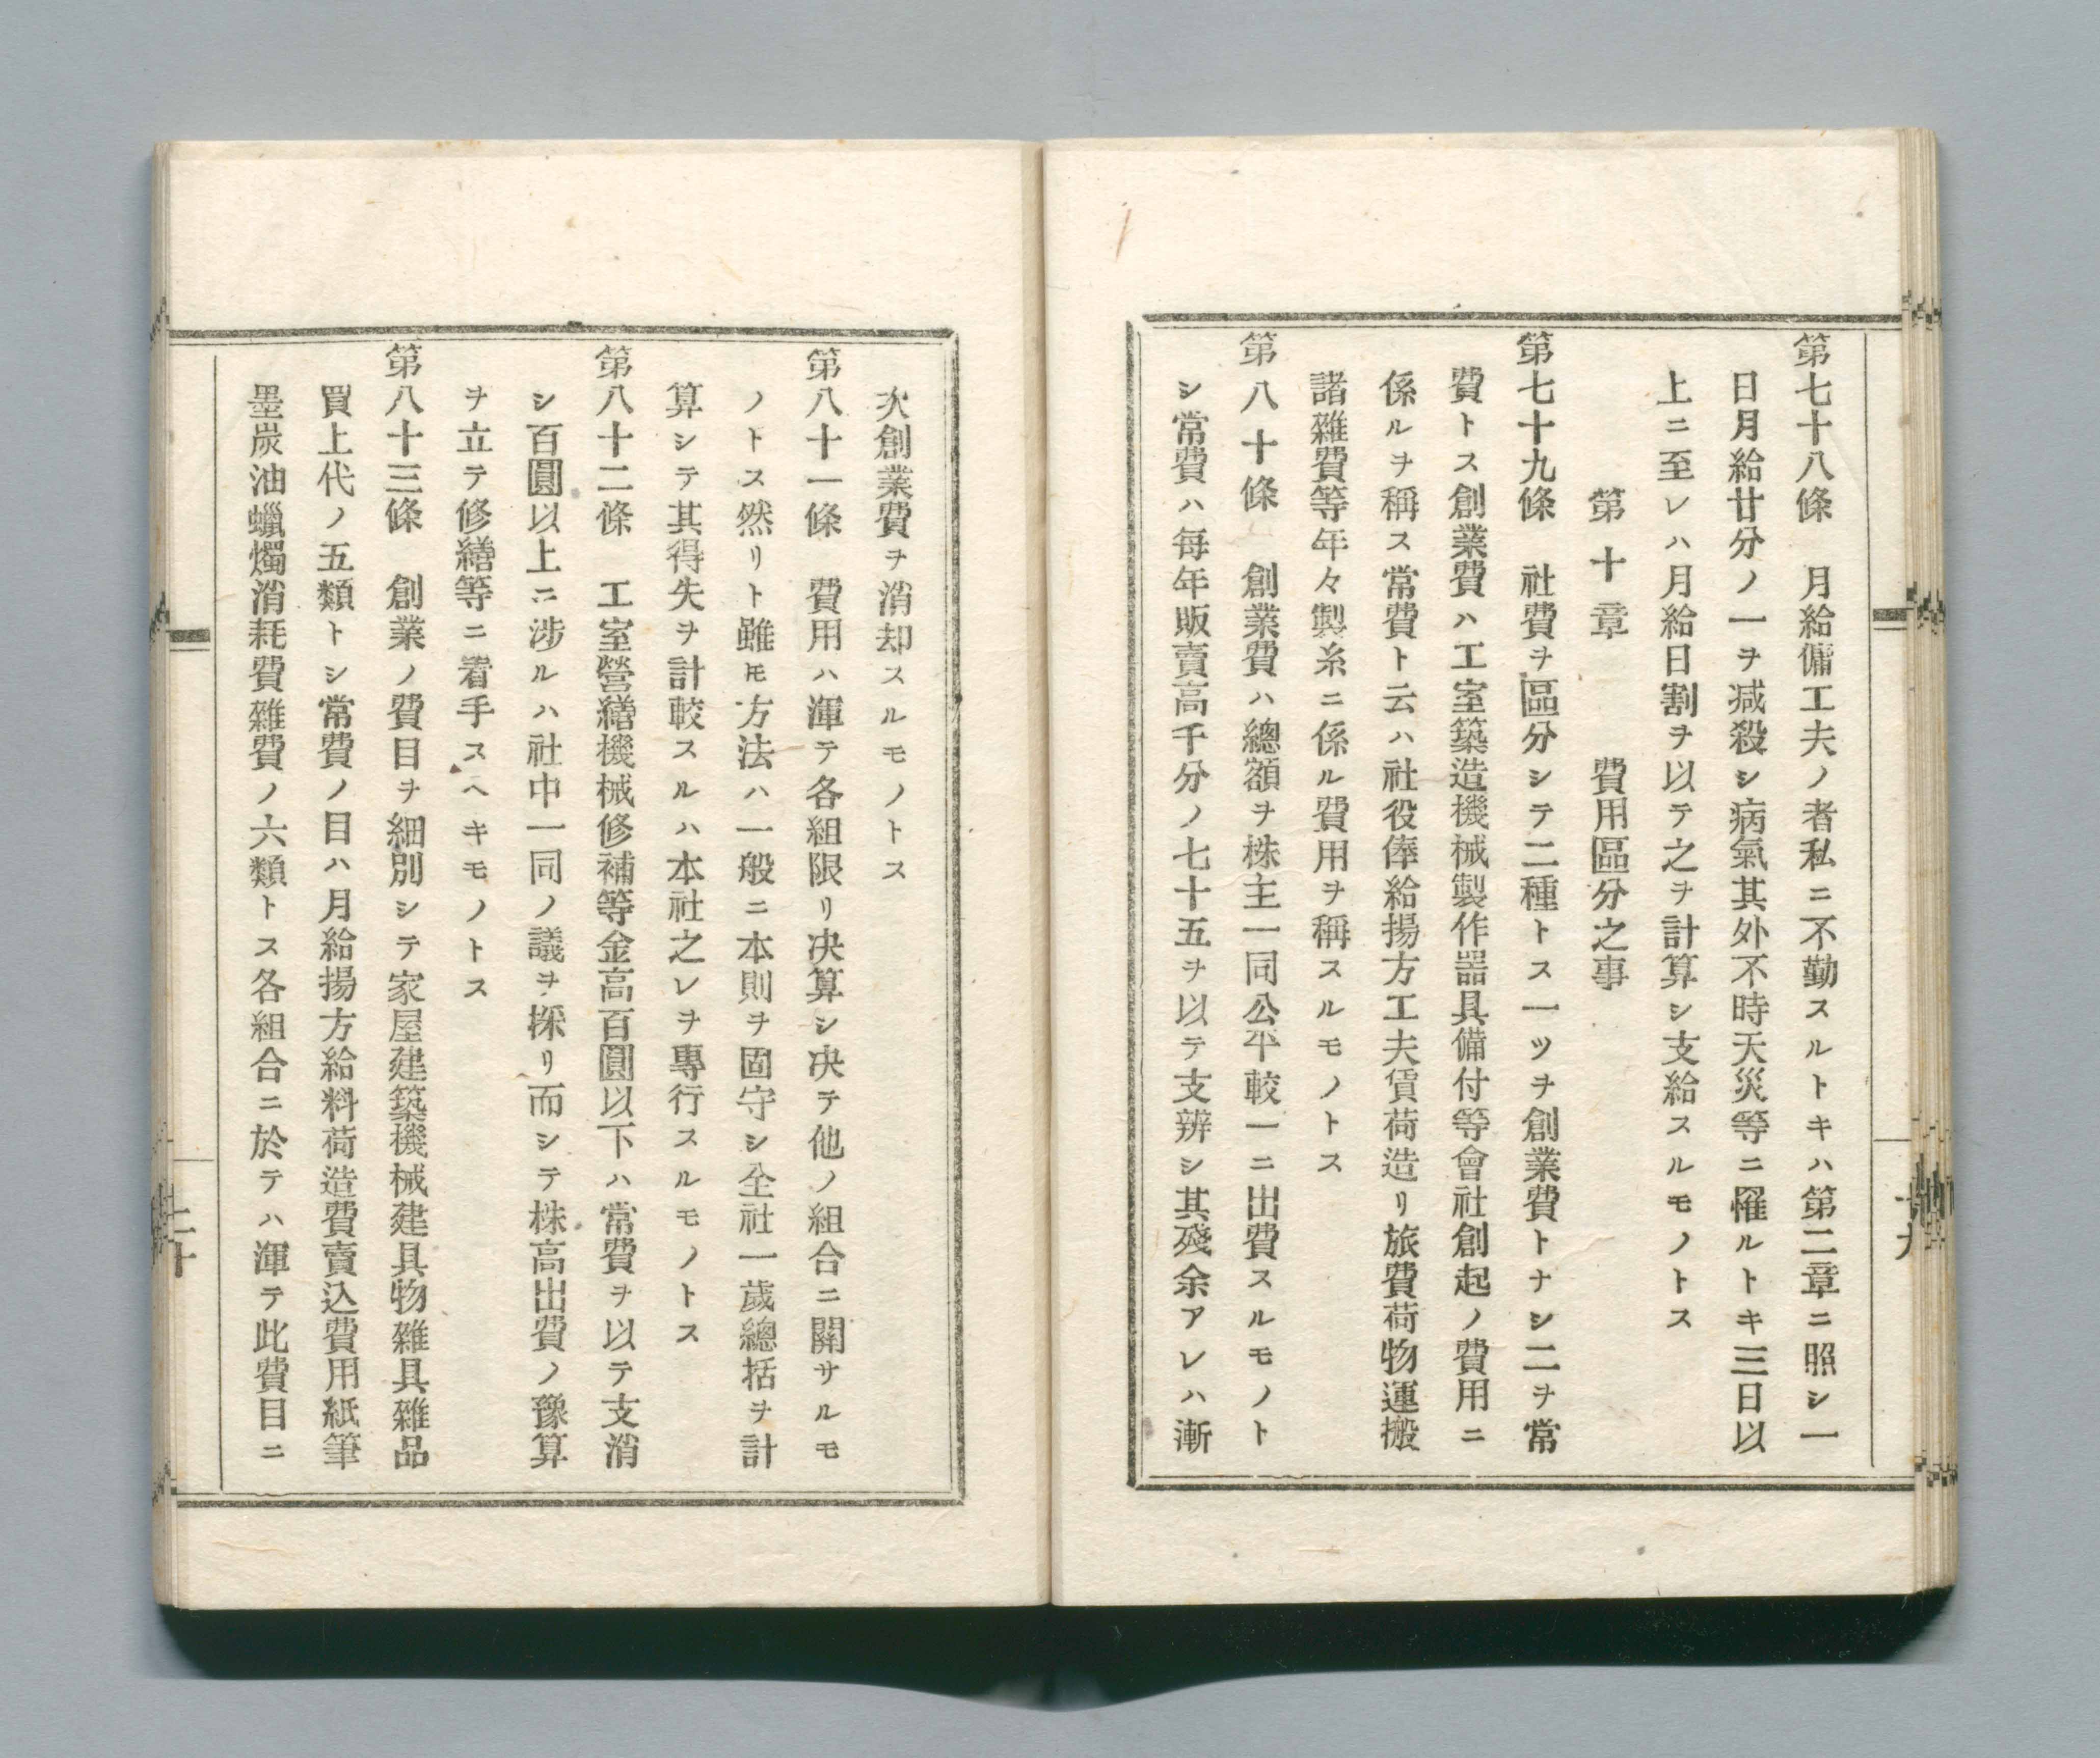 第七十八條　月給傭工夫ノ者私ニ不勤スルトキハ第二章ニ照シ一
日月給廿分ノ一ヲ減殺シ病氣其外不時天災等ニ罹ルトキ三日以
上ニ至レハ月給日割ヲ以テ之ヲ計算シ支給スルモノトス
第十章　　費用區分之事
第七十九條　社費ヲ區分シテ二種トス一ツヲ創業費トナシ二ヲ常
費トス創業費ハ工室築造機械製作器具備付等會社創起ノ費用ニ
係ルヲ稱ス常費ト云ハ社役俸給揚方工夫賃荷造リ旅費荷物運搬
諸雜費等年々製糸ニ係ル費用ヲ稱スルモノトス
第八十條　創業費ハ總額ヲ株主一同公平較一ニ出費スルモノト
シ常費ハ毎年販賣高千分ノ七十五ヲ以テ支辨シ其殘余アレハ漸
十九
次創業費ヲ消却スルモノトス
第八十一條　費用ハ渾テ各組限リ决算シ决テ他ノ組合ニ關サルモ
ノトス然リト雖𪜈方法ハ一般ニ本則ヲ固守シ全社一歲總括ヲ計
算シテ其得失ヲ計較スルハ本社之レヲ專行スルモノトス
第八十二條　工室營繕機械修補等金高百圓以下ハ常費ヲ以テ支消
シ百圓以上ニ涉ルハ社中一同ノ議ヲ採リ而シテ株高出費ノ豫算
ヲ立テ修繕等ニ着手スヘキモノトス
第八十三條　創業ノ費目ヲ細別シテ家屋建築機械建具物雜具雜品
買上代ノ五類トシ常費ノ目ハ月給揚方給料荷造費賣込費用紙筆
墨炭油蠟燭消耗費雜費ノ六類トス各組合ニ於テハ渾テ此費目ニ
二十